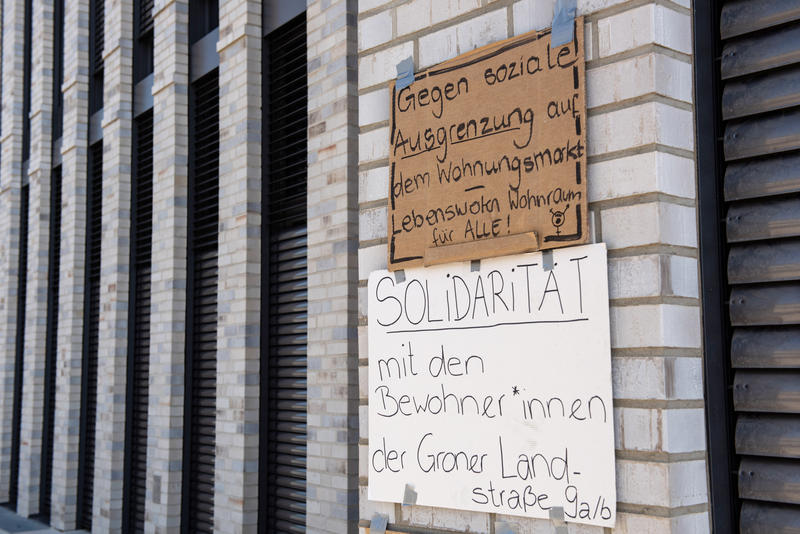 Gegen soziale
Ausgrenzung auf
dem Wohnungsmarkt
–
Lebenswerten Wohnraum
für ALLE!
SOLiDARiTÄT
mit den
Bewohner*innen
der Groner Land-
straße 9a/b